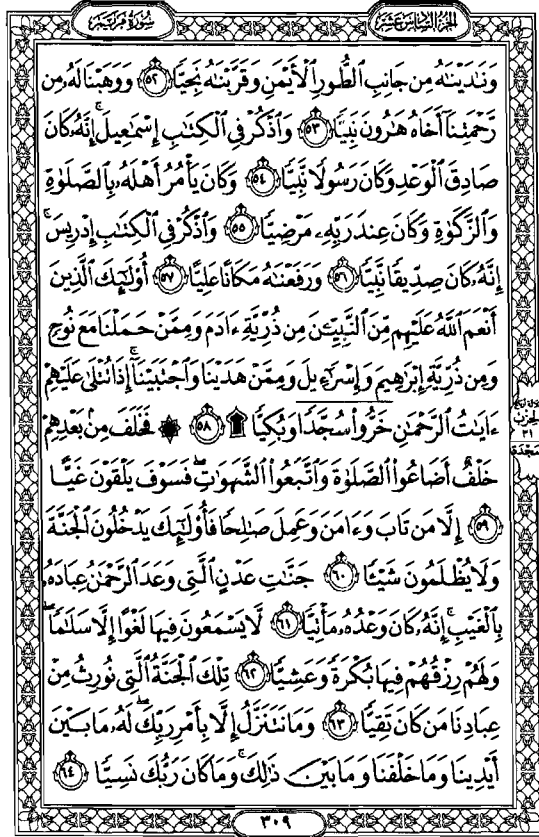 سُورَةُ مَرْيَمَ
الجُزْءُ السَّادِسَ عَشَرَ
وَنَٰدَيْنَٰهُ مِن جَانِبِ ٱلطُّورِ ٱلْأَيْمَنِ وَقَرَّبْنَٰهُ نَجِيًّا ٥٢ وَوَهَبْنَا لَهُۥ مِن
رَّحْمَتِنَآ أَخَاهُ هَٰرُونَ نَبِيًّا ٥٣ وَٱذْكُرْ فِى ٱلْكِتَٰبِ إِسْمَٰعِيلَ ۚ إِنَّهُۥ كَانَ
صَادِقَ ٱلْوَعْدِ وَكَانَ رَسُولًا نَّبِيًّا ٥٤ وَكَانَ يَأْمُرُ أَهْلَهُۥ بِٱلصَّلَوٰةِ
وَٱلزَّكَوٰةِ وَكَانَ عِندَ رَبِّهِۦ مَرْضِيًّا ٥٥ وَٱذْكُرْ فِى ٱلْكِتَٰبِ إِدْرِيسَ ۚ
إِنَّهُۥ كَانَ صِدِّيقًا نَّبِيًّا ٥٦ وَرَفَعْنَٰهُ مَكَانًا عَلِيًّا ٥٧ أُو۟لَٰٓئِكَ ٱلَّذِينَ
أَنْعَمَ ٱللَّهُ عَلَيْهِم مِّنَ ٱلنَّبِيِّۦنَ مِن ذُرِّيَّةِ ءَادَمَ وَمِمَّنْ حَمَلْنَا مَعَ نُوحٍ
وَمِن ذُرِّيَّةِ إِبْرَٰهِيمَ وَإِسْرَٰٓءِيلَ وَمِمَّنْ هَدَيْنَا وَٱجْتَبَيْنَآ ۚ إِذَا تُتْلَىٰ عَلَيْهِمْ
ءَايَٰتُ ٱلرَّحْمَٰنِ خَرُّوا۟ سُجَّدًا وَبُكِيًّا ۩ ٥٨ ۞ فَخَلَفَ مِنۢ بَعْدِهِمْ
خَلْفٌ أَضَاعُوا۟ ٱلصَّلَوٰةَ وَٱتَّبَعُوا۟ ٱلشَّهَوَٰتِ ۖ فَسَوْفَ يَلْقَوْنَ غَيًّا
٥٩ إِلَّا مَن تَابَ وَءَامَنَ وَعَمِلَ صَٰلِحًا فَأُو۟لَٰٓئِكَ يَدْخُلُونَ ٱلْجَنَّةَ
وَلَا يُظْلَمُونَ شَيْـًٔا ٦٠ جَنَّٰتِ عَدْنٍ ٱلَّتِى وَعَدَ ٱلرَّحْمَٰنُ عِبَادَهُۥ
بِٱلْغَيْبِ ۚ إِنَّهُۥ كَانَ وَعْدُهُۥ مَأْتِيًّا ٦١ لَّا يَسْمَعُونَ فِيهَا لَغْوًا إِلَّا سَلَٰمًا ۖ
وَلَهُمْ رِزْقُهُمْ فِيهَا بُكْرَةً وَعَشِيًّا ٦٢ تِلْكَ ٱلْجَنَّةُ ٱلَّتِى نُورِثُ مِنْ
عِبَادِنَا مَن كَانَ تَقِيًّا ٦٣ وَمَا نَتَنَزَّلُ إِلَّا بِأَمْرِ رَبِّكَ ۖ لَهُۥ مَا بَيْنَ
أَيْدِينَا وَمَا خَلْفَنَا وَمَا بَيْنَ ذَٰلِكَ ۚ وَمَا كَانَ رَبُّكَ نَسِيًّا ٦٤
الحِزْبُ
٣١
سَجْدَة
٣٠٩